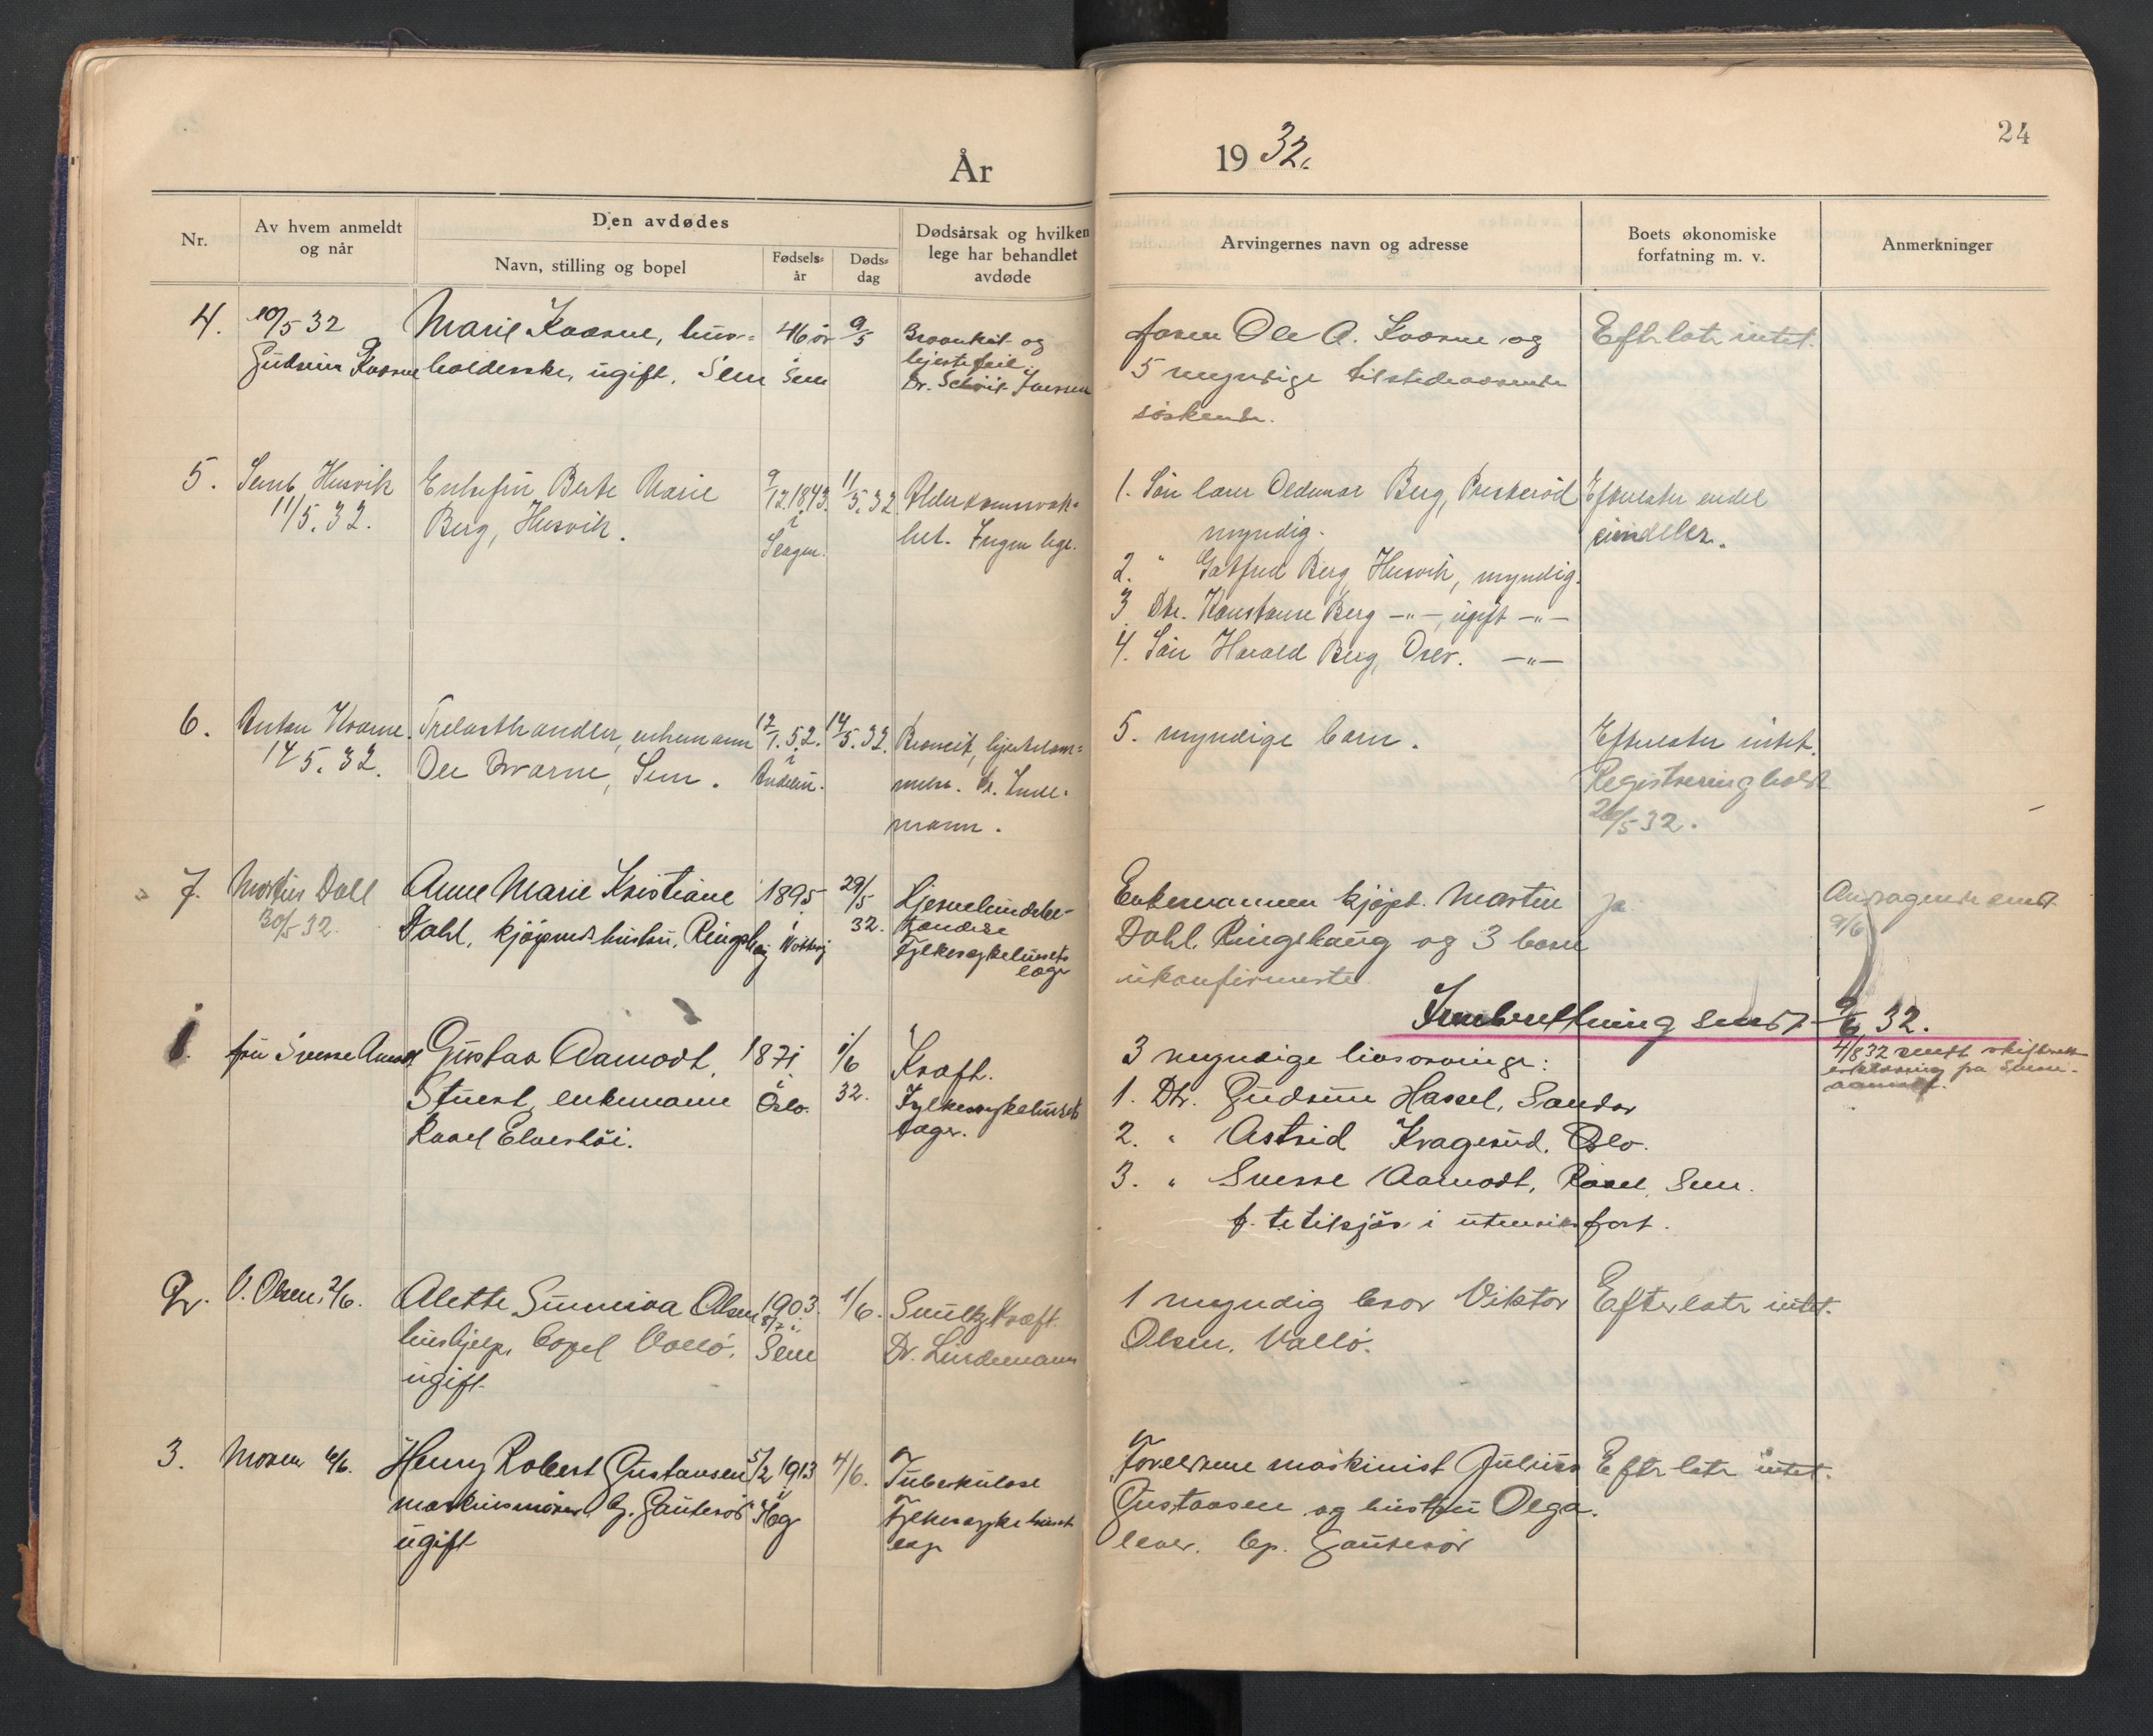 År
19 32.
24
Nr.
Av hvem anmeldt
og når
Den avdødes
Navn, stilling og bopel
Fødsels-
år
Døds-
dag
Dødsårsak og hvilken
lege har behandlet
avdøde
Arvingernes navn og adresse
Boets økonomiske
forfatning m. v.
Anmerkninger
4.
10/5 32
Gudrun
Marie Kværne, hus-
holderske, ugift, Sem
46 år
Sem
9/5
og
hjertefeil
Dr.
faren Ole A. Kværne og
5 myndige tilstedeværende
søskende.
Efterlatr intet.
5.
Semb Husvik
11/5.32.
Enkefru Berte Marie
Berg, Husvik.
9/12.1843.
i
Slagen.
11/5.32
Alderdomssvak-
het. lege.
1. Søn Berg,
myndig.
2. " Berg Husvik, myndig.
3. Dtr. Konstanse Berg -"-, ugift -"-
4. Søn Harald Berg, Oslo. -"-
Efterlater endel
eiendeler.
6.
Anton Kværne.
14 5.32.
Trelasthandler, enkemann
Ole Kværne, Sem.
1.52.
i
14/5.32.
Dr. Linde-
mann.
5. myndige barn.
Efterlater intet.
Registrering holdt
26/5 32.
7.
Martin Dahl
30/5 32.
Anne Marie Kristiane
Dahl, kjøpmannshustru, Ringshaug
1895
i
29/5
32.
Hjernehindebe-
tendelse
Fylkessykehusets
læge
Enkemannen kjøpm. Martin
Dahl, Ringshaug og 3 barn
ukonfirmerte
Ja
Andragende sendt
9/6
Innberetning sendt 9/6 32.
1.
fru Sverre Aamodt
Gustav Aamodt,
Stuert, enkemann
Ravel Elverhöi.
1871
i
Oslo.
1/6
32.
Kræft.
Fylkessykehusets
læger.
3 myndige livsarvinger:
1. Dtr. Gudrun Hassel, Sandar
2. " Astrid Kragerud, Oslo.
3. " Sverre Aamodt, Ravel, Sem.
f. t. tilsjøs i utenriksfart.
4/8 32 sendt skifterett
erklæring fra Sverre
Aamodt.
2.
V. Olsen, 2/6.
Alette Sunniva Olsen
hushjelp, bopel Vallö,
ugift
1903.
8/7 i
Sem
1/6.
Kræft.
Dr. Lindemann
1 myndig bror Viktor
Olsen, Vallö.
Efterlatr intet.
3.
Moren 6/6.
Henry Robert Gustavsen
ugift
5/2 1913
i
4/6.
Tuberkulose
Fylkessykehuset
læge
Forældrene maskinist Julius
Gustavsen og hustru Olga.
lever. bp.
Efterlatr intet.